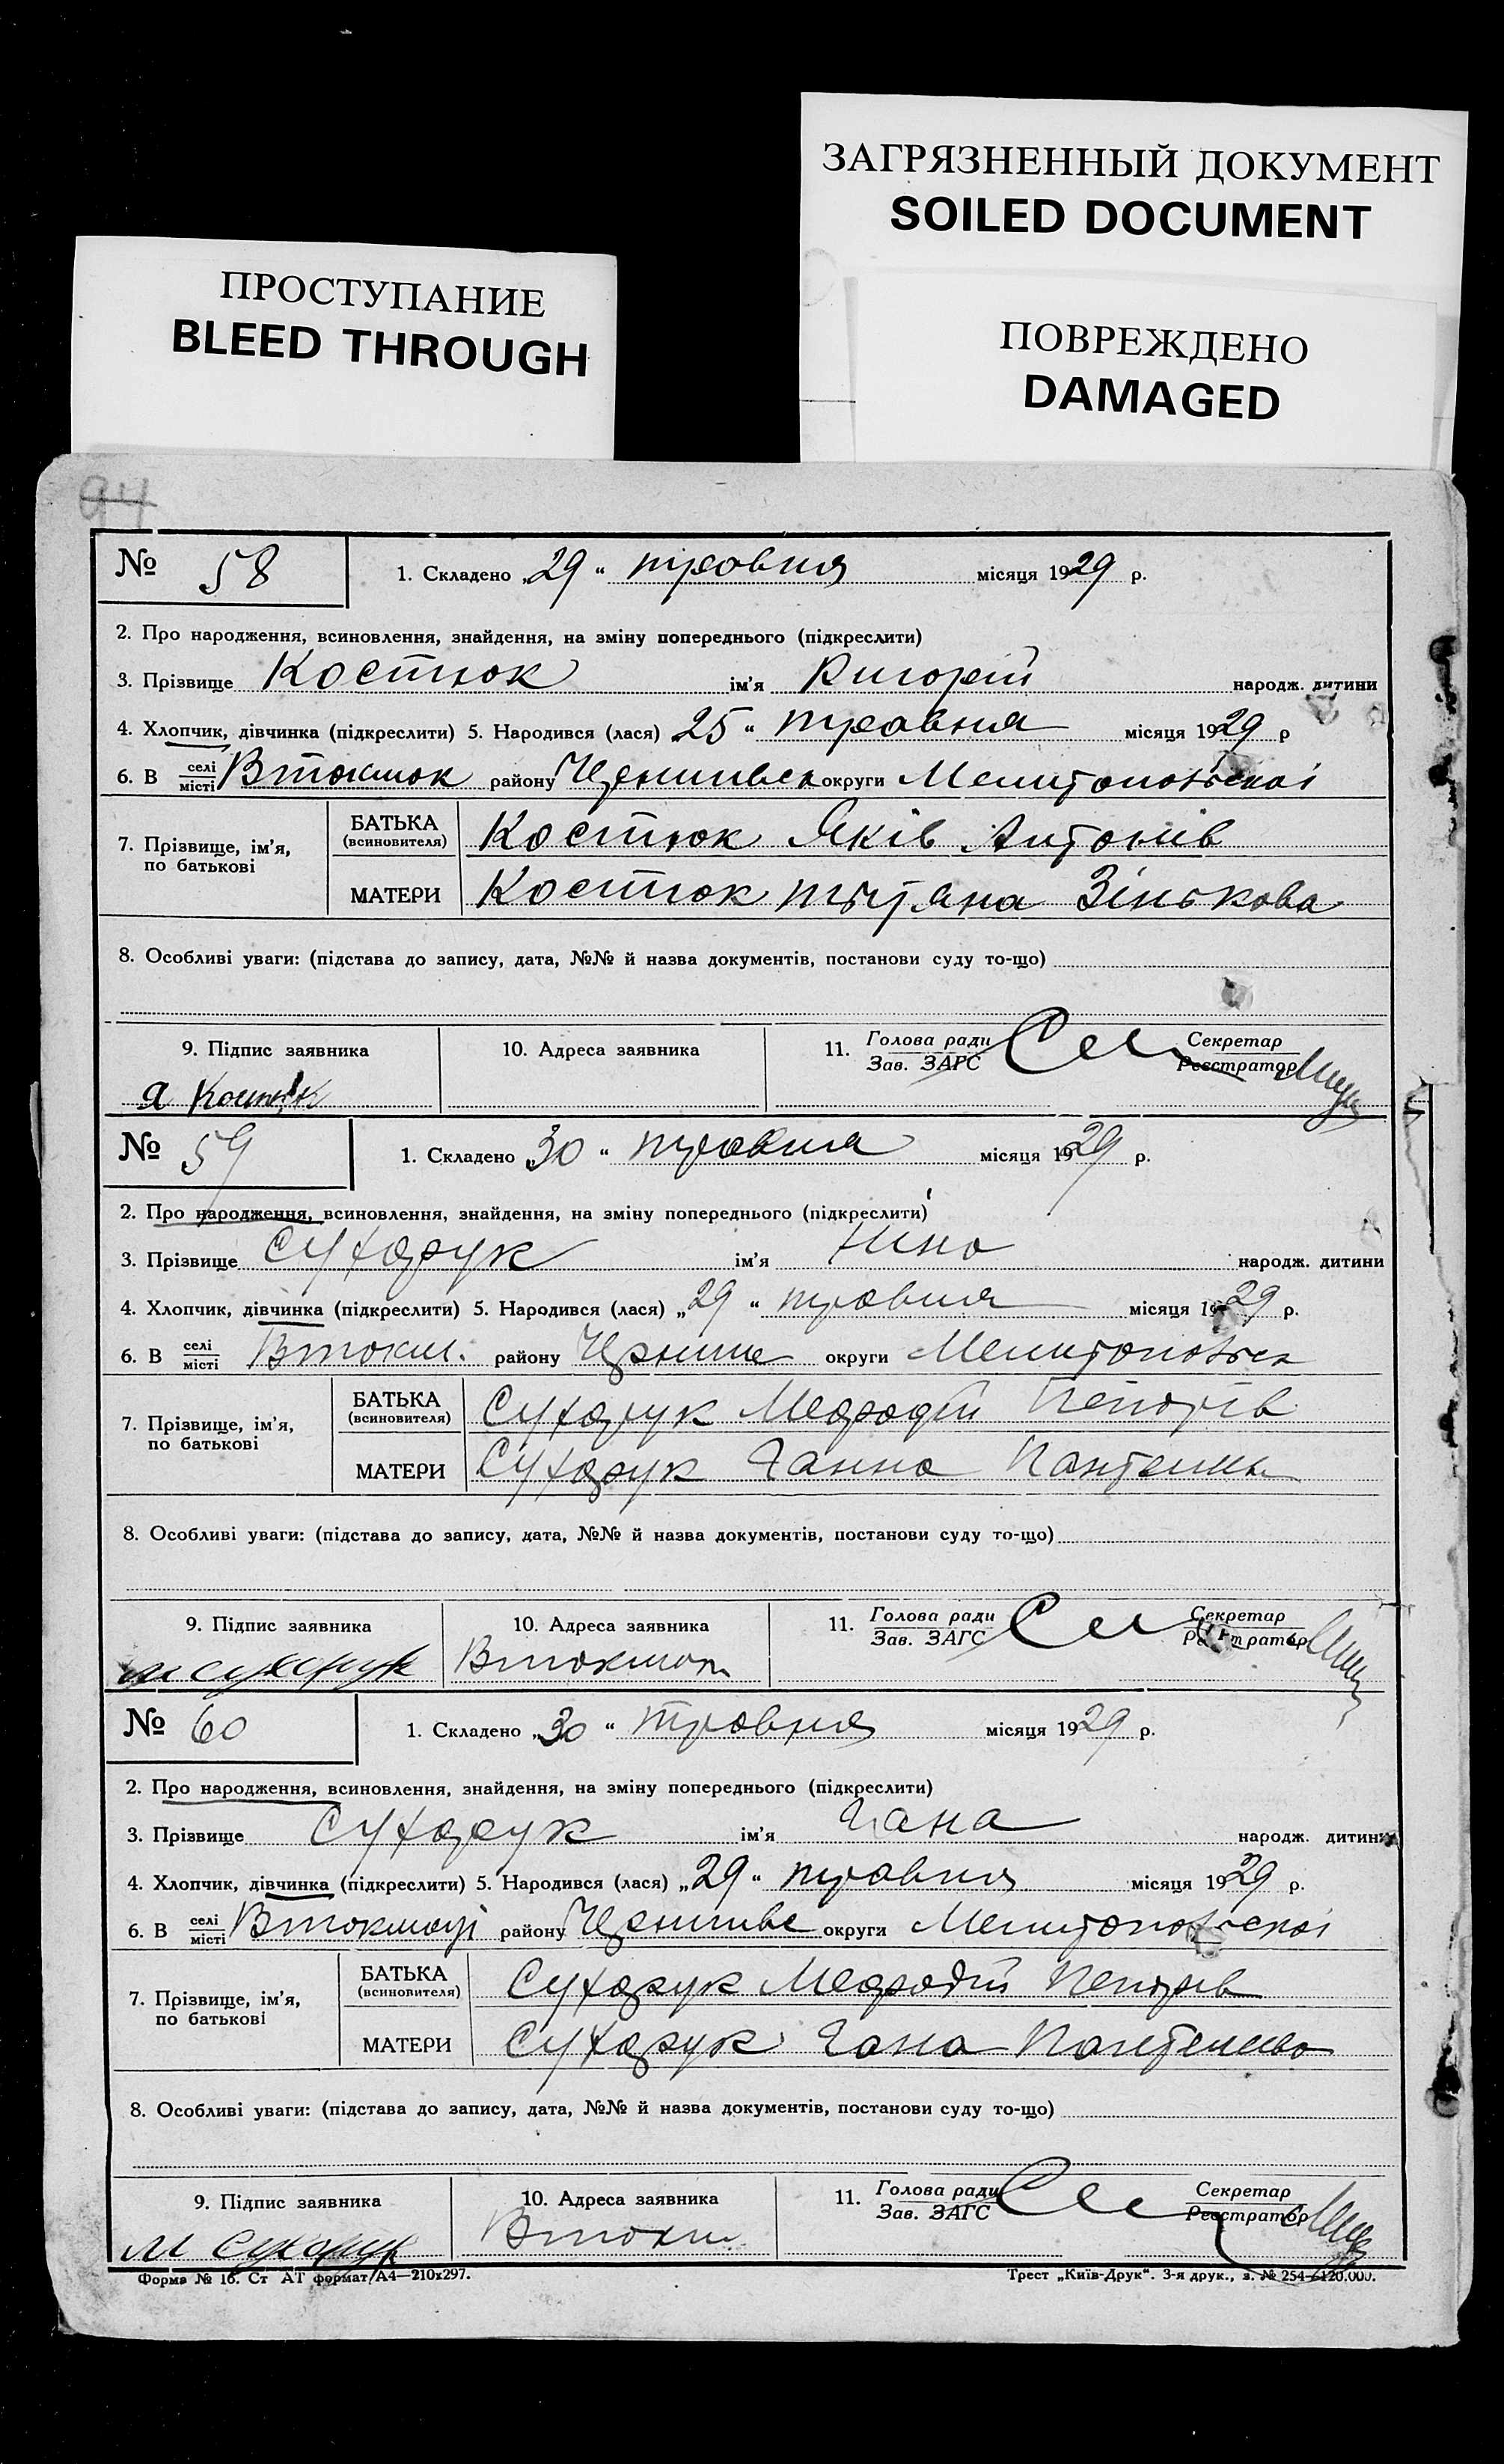 ЗАГРЯЗНЕННЫЙ ДОКУМЕНТ
SOILED DOCUMENT
ПРОСТУПАНИЕ
BLEED THROUGH
ПОВРЕЖДЕНО
DAMAGED
94
№ 58 1. Складено „29“ травня місяця 1929 р.
2. Про народження, всиновлення, знайдення, на зміну попереднього (підкреслити)
3. Прізвище Костюк ім'я Григорій народж. дитини
4. Хлопчик, дівчинка (підкреслити) 5. Народився (лася) „25“ травня місяця 1929 р
6. В селі/місті Втокмак району округи Мелитопольської
7. Прізвище, ім'я, по батькові
БАТЬКА (всиновителя) Костюк Яків Антонів
МАТЕРИ Костюк Тетяна Зінькова
8. Особливі уваги: (підстава до запису, дата, №№ й назва документів, постанови суду то-що)
9. Підпис заявника 10. Адреса заявника 11. Голова ради/Зав. ЗАГС Секретар/Реєстратор
Я Костюк
№ 59 1. Складено „30“ травня місяця 1929 р.
2. Про народження, всиновлення, знайдення, на зміну попереднього (підкреслити)
3. Прізвище Сухарук ім'я Ніна народж. дитини
4. Хлопчик, дівчинка (підкреслити) 5. Народився (лася) „29“ травня місяця 1929 р.
6. В селі/місті Втокм. району округи Мелитопольск
7. Прізвище, ім'я, по батькові
БАТЬКА (всиновителя) Сухарук Петрів
МАТЕРИ Сухарук Ганна
8. Особливі уваги: (підстава до запису, дата, №№ й назва документів, постанови суду то-що)
9. Підпис заявника 10. Адреса заявника 11. Голова ради/Зав. ЗАГС Секретар/Реєстратор
М Сухарук Втокмак
№ 60 1. Складено „30“ травня місяця 1929 р.
2. Про народження, всиновлення, знайдення, на зміну попереднього (підкреслити)
3. Прізвище Сухарук ім'я Гана народж. дитини
4. Хлопчик, дівчинка (підкреслити) 5. Народився (лася) „29“ травня місяця 1929 р.
6. В селі/місті Втокмаці району округи Мелитопольської
7. Прізвище, ім'я, по батькові
БАТЬКА (всиновителя) Сухарук Петрів
МАТЕРИ Сухарук Гана
8. Особливі уваги: (підстава до запису, дата, №№ й назва документів, постанови суду то-що)
9. Підпис заявника 10. Адреса заявника 11. Голова ради/Зав. ЗАГС Секретар/Реєстратор
М Сухарук Втокм
Форма № 16. Ст АТ формат А4—210х297. Трест „Київ-Друк“. 3-я друк., з. № 254—120.000.